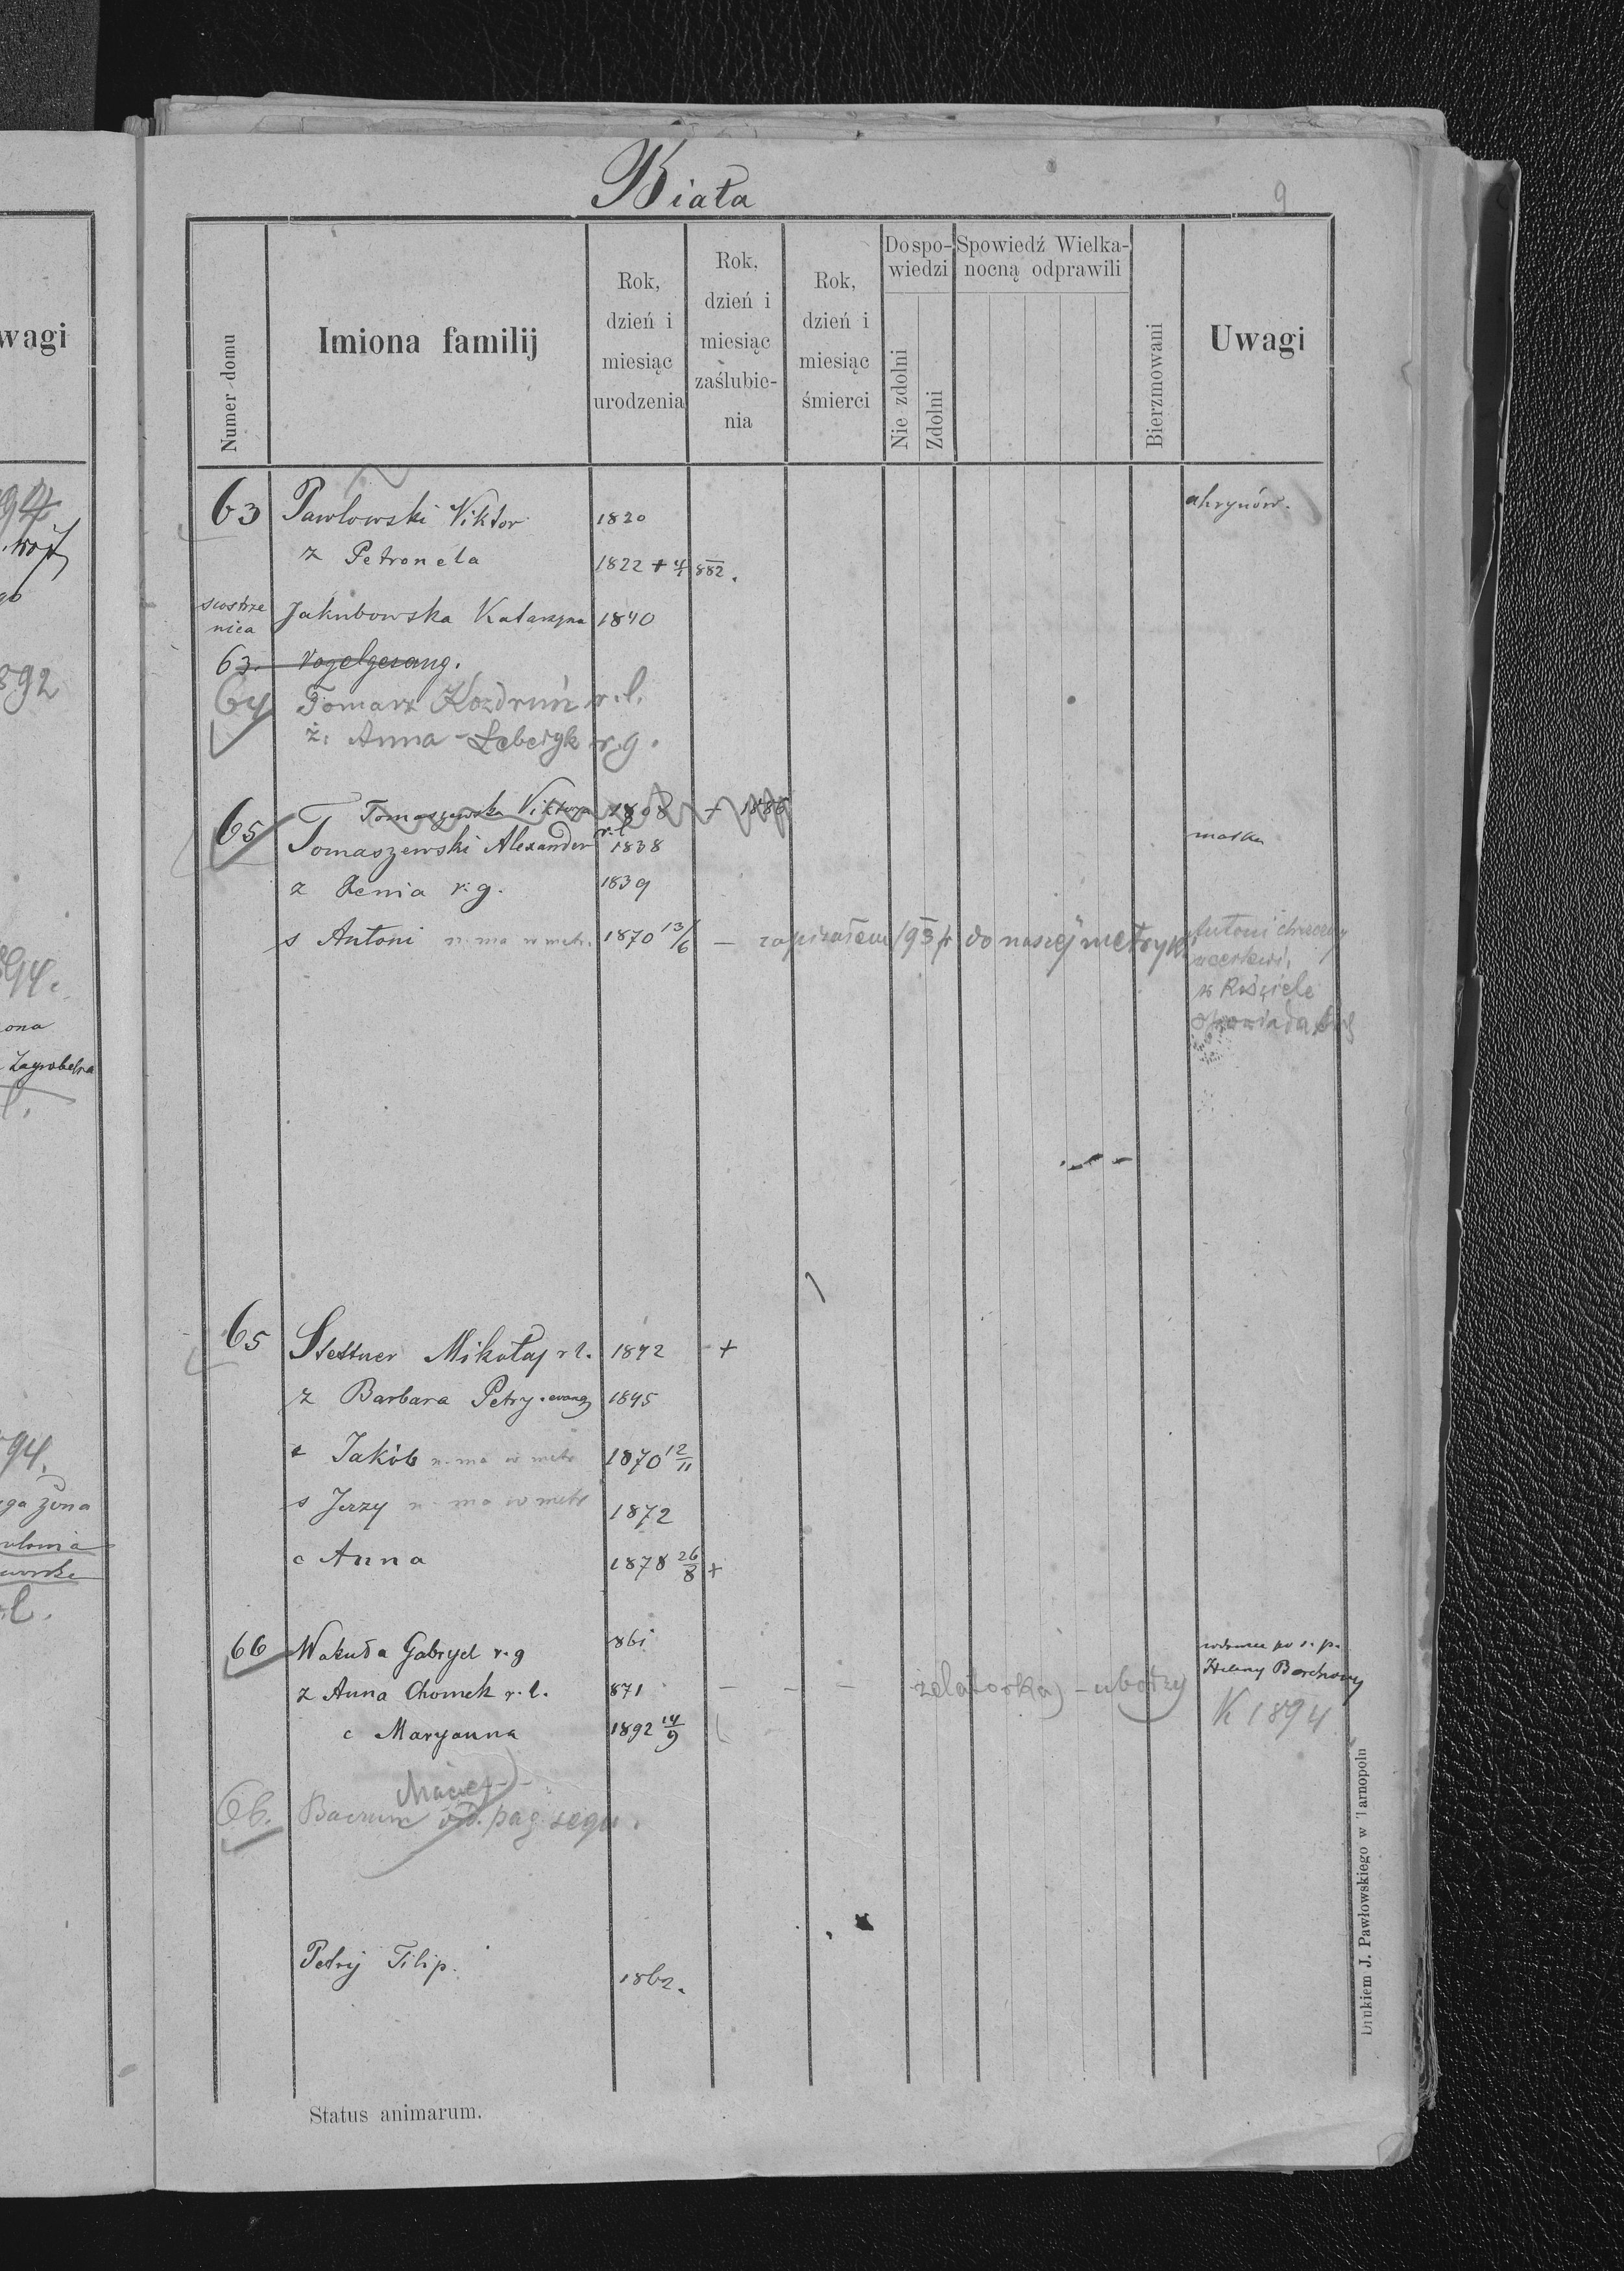 Biała
9
Numer domu
Imiona familij
Rok, dzień i miesiąc urodzenia
Rok, dzień i miesiąc zaślubienia
Rok, dzień i miesiąc śmierci
Do spowiedzi
Nie zdolni
Zdolni
Spowiedź Wielkanocną odprawili
Bierzmowani
Uwagi
63 Pawlowski Viktor 1820
z Petronela 1822 + 882.
siostrzenica Jakubowska Katarzyna 1840
63. Vogelgesang.
64 Tomasz Kozdruń r.l.
ż. Anna r.g.
Tomaszewska Viktorya 1808 + 1886
65 Tomaszewski Alexander r.l 1838 matka
z Xenia r.g. 1839
s Antoni n. ma w metr. 1870 13/6 — zapisałem 193 do naszej metryki Antoni chrzczony
w cerkwi,
w Kościele
spowiada się
65 Stettner Mikołaj r l. 1842 +
z Barbara Petry. evang 1845
s Jakób n. ma w metr 1870 12/11
s Jerzy n. ma w metr 1872
c Anna 1878 26/8 +
66 Wakuła Gabryel r.g 861 wdowiec po ś. p.
Heleny
z Anna Chomek r.l. 871 — - — zelatorka) - ubotzy
K 1894
c Maryanna 1892 14/9
Maciej
66. vid. pag. sequ.
Petrij Filip. 1862.
Status animarum.
Drukiem J. Pawłowskiego w Tarnopolu
wagi
892
894.
żona
94.
żona